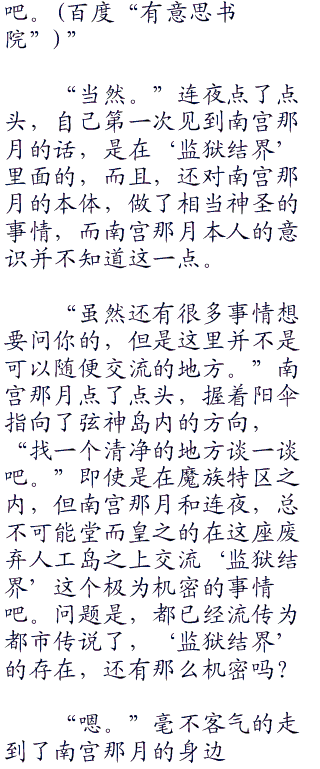 吧。(百度“有意思书
院”)”
“当然。”连夜点了点
头，自己第一次见到南宫那
月的话，是在‘监狱结界’
里面的，而且，还对南宫那
月的本体，做了相当神圣的
事情，而南宫那月本人的意
识并不知道这一点。
“虽然还有很多事情想
要问你的，但是这里并不是
可以随便交流的地方。”南
宫那月点了点头，握着阳伞
指向了弦神岛内的方向，
“找一个清净的地方谈一谈
吧。”即使是在魔族特区之
内，但南宫那月和连夜，总
不可能堂而皇之的在这座废
弃人工岛之上交流‘监狱结
界’这个极为机密的事情
吧。问题是，都已经流传为
都市传说了，‘监狱结界’
的存在，还有那么机密吗？
“嗯。”毫不客气的走
到了南宫那月的身边